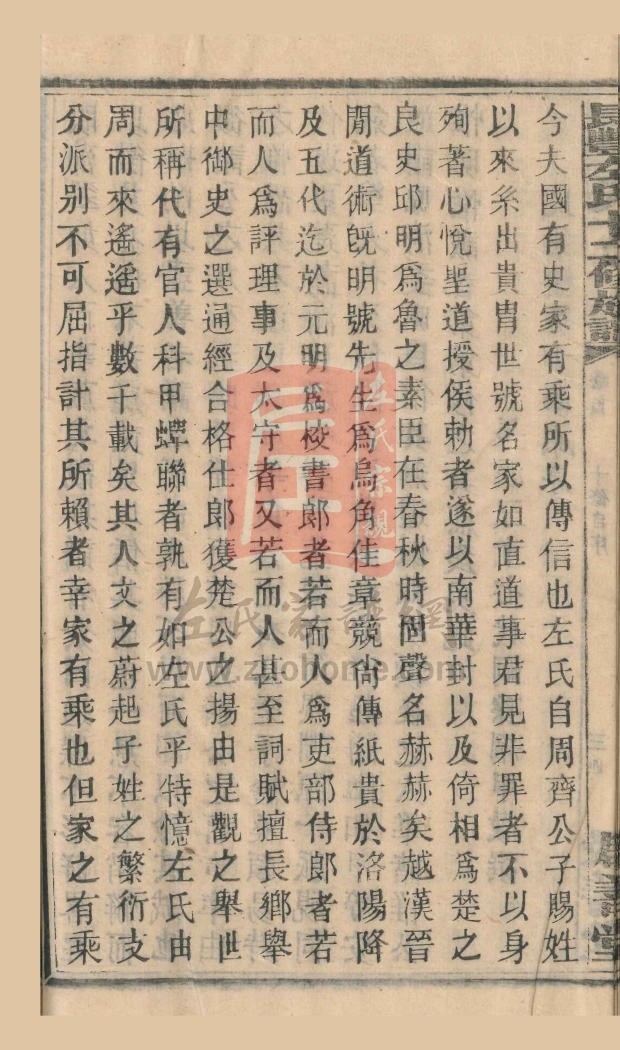 今夫國有史家有乘所以傳信也左氏自周齊公子賜姓
以來系出貴胄世號名家如直道事君見非罪者不以身
殉著心悅聖道授侯勅者遂以南華封以及倚相爲楚之
良史邱明爲魯之素臣在春秋時固聲名赫赫矣越漢晉
閒道術旣明號先生爲烏角佳章競尙傳紙貴於洛陽降
及五代迄於元明爲校書郎者若而人爲吏部侍郎者若
而人爲評理事及太守者又若而人甚至詞賦擅長鄉舉
中御史之選通經合格仕郎獲楚公之揚由是觀之舉世
所稱代有官人科甲蟬聯者孰有如左氏乎特憶左氏由
周而來遙遙乎數千載矣其人文之蔚起子姓之繁衍支
分派别不可屈指計其所賴者幸家有乘也但家之有乘
左氏宗親
左氏家譜網
www.zuohome.com